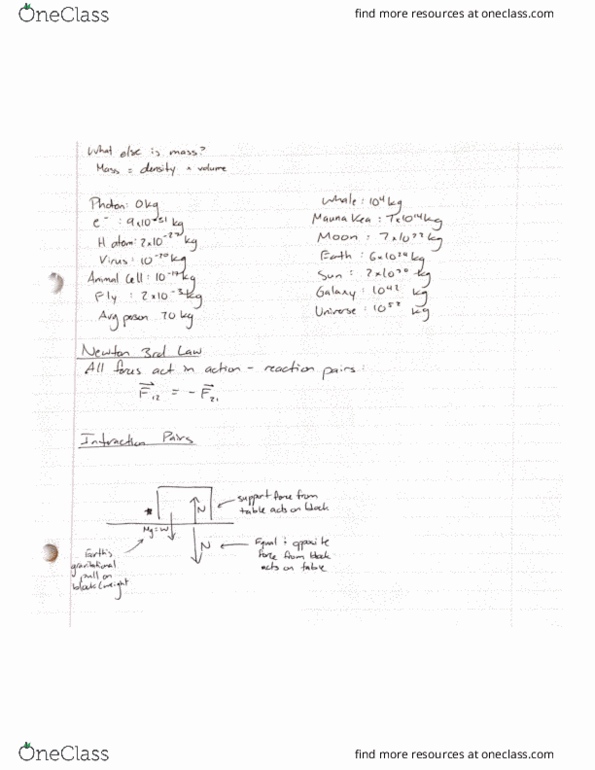 OneClass
find more resources at oneclass.com
What else is mass?
Mass = density × volume
Photon: 0 kg
e⁻ : 9×10⁻³¹ kg
H atom: 2×10⁻²⁷ kg
Virus: 10⁻²⁰ kg
Animal Cell: 10⁻¹² kg
Fly : 2×10⁻³ kg
Avg person 70 kg
Whale: 10⁴ kg
Mauna Kea : 7×10¹⁴ kg
Moon : 7×10²² kg
Earth : 6×10²⁴ kg
Sun : 2×10³⁰ kg
Galaxy : 10⁴² kg
Universe : 10⁵² kg
Newton 3rd Law
All forces act in action - reaction pairs:
F⃗₁₂ = - F⃗₂₁
Intraction Pairs
support force from
table acts on block
N
Mg=w
N
Equal & opposite
force from block
acts on table
Earth's
gravitational
pull on
block (weight
OneClass
find more resources at oneclass.com